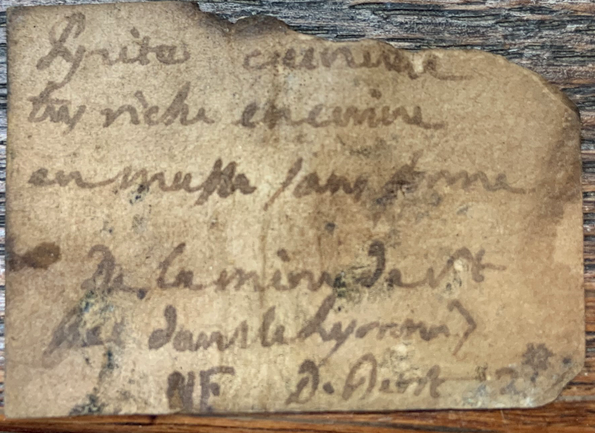 Pyrite cuivreuse
tres riche en cuivre
en masse sans forme
De la mine de St
bel dans le Lyonnais
NF D.